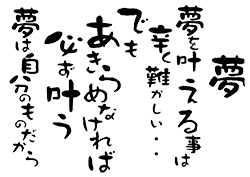 夢
夢を叶える事は
辛く難かしい・・
でも
あきらめなければ
必ず叶う
夢は自分のものだから